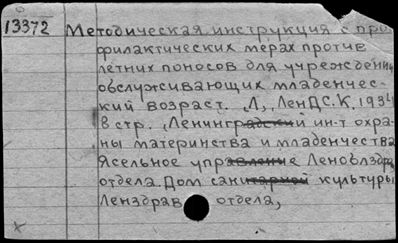 13372 Методическая инструкция с про
филактических мерах против
летних поносов для учрежден
обслуживающих младенчес-
кий возраст. Л, ЛенДС.К, 1934
8 стр., Ленинградский ин-т охра-
ны материнства и младенчества
Ясельное управление Леноблздра
отдела. Дом санитарной культуры
Лензправ отдела,